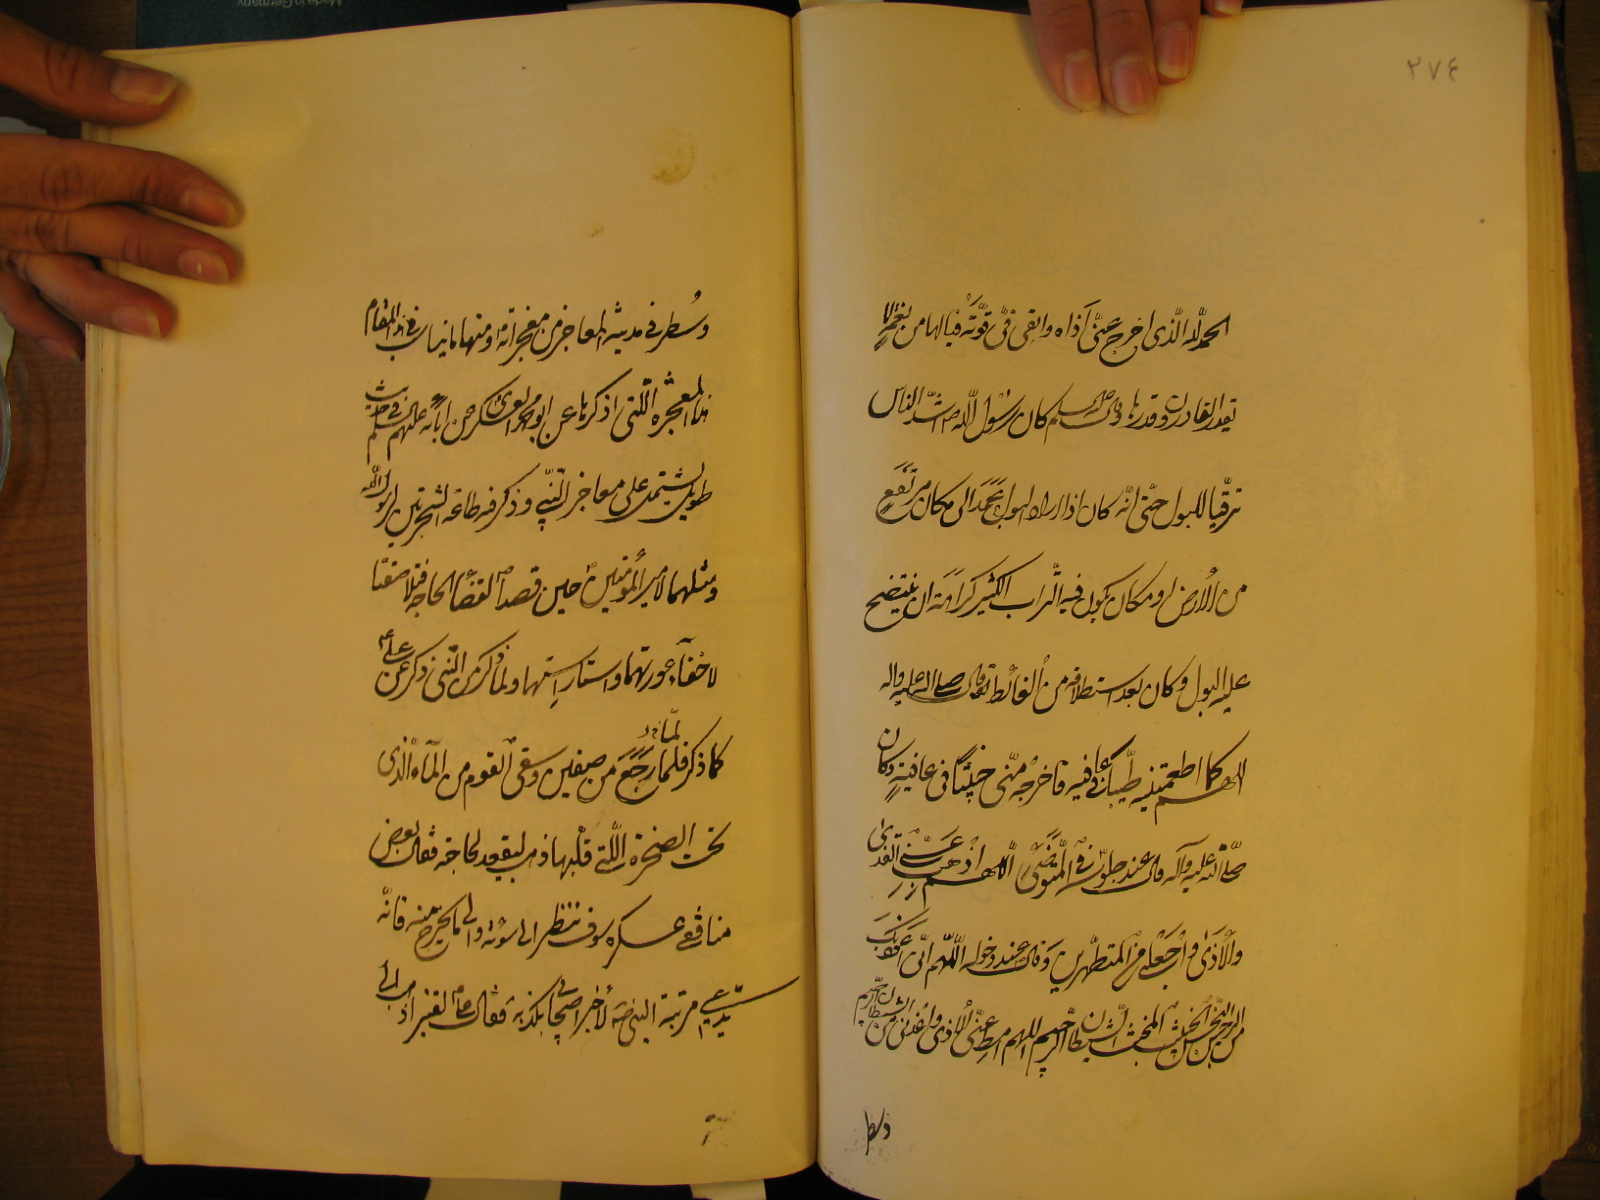 ٢٧٤
الحمد لله الذی اخرج عنّی اذاه وابقی فیّ قوّته فیالها من نعمة لا
یقدر القادرون قدرها کان رسول الله ص اشدّ الناس
توقّیا للبول حتّی انّه کان اذا اراد البول عمد الی مکان مرتفع
من الارض او مکان یکون فیه التّراب الکثیر کراهة ان ینتضح
علیه البول وکان بعد استطلاقه من الغائط یقول صلی الله علیه واله
اللهم کما اطعمتنیه طیّبا فی عافیة فاخرجه منّی خبیثا فی عافیة وکان
صلّی الله علیه وآله قال عند جلوسه فی المتوضّی اللهم اذهب عنّی القذی
والاذی واجعلنی من المتطهّرین وقال عند دخوله اللّهم انّی اعوذ بک
من الرجس النجس الخبیث المخبث الشیطان الرجیم اللهم امط عنّی الاذی واعذنی من الشیطان الرجیم
وسطر
وسطر فی مدینة المعاجز من معجزاته ومنها ما یناسب هذا المقام
هذا المعجزه الّلتی اذکرها عن ابو محمد العسکری عن آبائه علیهم السلم فی حدیث
طویل یشتمل علی معاجز النّبی وذکر فیه طاعة الشجرتین لرسول الله
ومثلهما لامیر المؤمنین ع حین قصد القضاء الحاجة فتلاصقتا
لاخفاء عورتهما واستار استهما ولمّا ذکر من النّبی ذکر عن علی ع
کما ذکر فلما رجع من صفین وسقی القوم من المآء الّذی
تحت الصخرة الّلتی قلبها ذهب لیقعد لحاجة فقال بعض
منافقی عسکره سوف ننظر الی سوئته والی ما یخرج منه فانّه
یدّعی مرتبة النبی ص لاخبر اصحابی بکذبه فقال ع القنبر اذهب الی